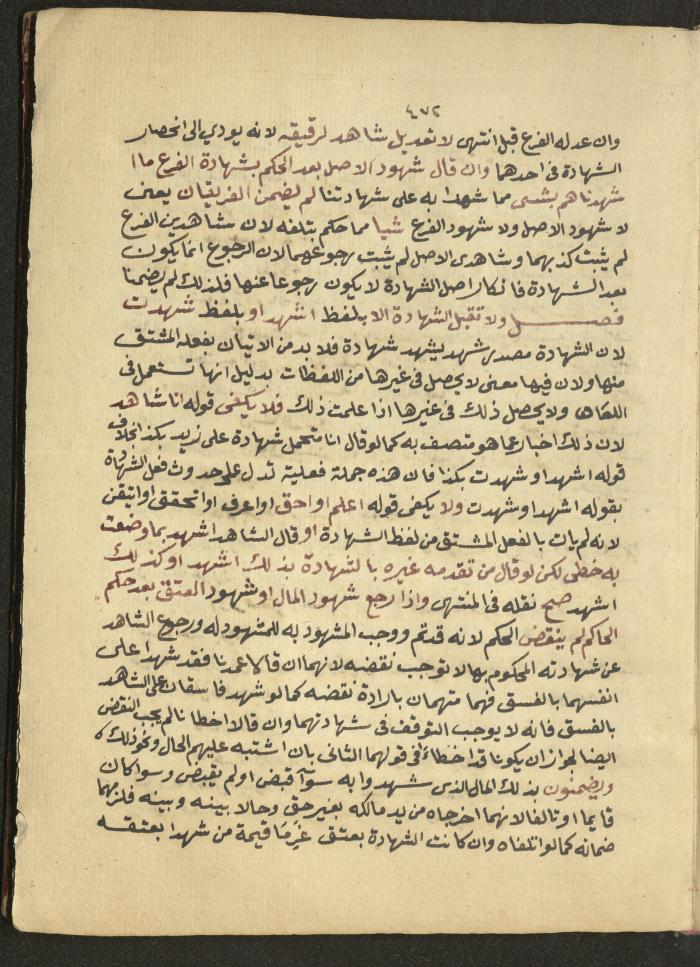 ٤٧٢
وان عدله الفرع قبل انتهى لا تعديل شاهد لرفيقه لانه يودي الى انحصار
الشهادة في احدها وان قال شهود الاصل بعد الحكم بشهادة الفرع ما ا
شهدناهم بشى مما شهدا به على شهادتنا لم يضمن الفريقان يعنى
لا شهود الاصل ولا شهود الفرع شيا مما حكم بتلفه لان شاهدين الفرع
لم يثبت كذبهما وشاهدى الاصل لم يثبت رجوعهما لان الرجوع انما يكون
بعد الشهادة فانكار اصل الشهادة لا يكون رجوعا عنها فلذلك لم يضمنا
فصل ولا تقبل الشهادة الا بلفظ اشهد او بلفظ شهدت
لان الشهادة مصدر شهد يشهد شهادة فلا بد من الاتيان بفعله المشتق
منها ولان فيها معنى لا يحصل فى غيرها من اللفظات بدليل انها تستعمل فى
اللعان ولا يحصل ذلك فى غيرها اذا علمت ذلك فلا يكفى قوله انا شاهد
لان ذلك اخبار عما هو متصف به كما لو قال انا متحمل شهادة على زيد بكذا بخلاف
قوله اشهد او شهدت بكذا فان هذه جملة فعلية تدل على حدوث فعل الشهادة
بقوله اشهد او شهدت ولا يكفى قوله اعلم او احق او اعرف او اتحقق او اتيقن
لانه لم يات بالفعل المشتق من لفظ الشهادة او قال الشاهد اشهد بما وضعت
به خطى لكن لو قال من تقدمه غيره بالشهادة بذلك اشهد او كذلك
اشهد صح نقله فى المنتهى واذا رجع شهود المال او شهود العتق بعد حكم
الحاكم لم ينقض الحكم لانه قد تم ووجب المشهود به للمشهود له ورجوع الشاهد
عن شهادته المحكوم بها لا توجب نقضه لانهما ان قالا عمدنا فقد شهدا على
انفسهما بالفسق فهما متهمان بارادة نقضه كما لو شهد فاسقان على الشاهد
بالفسق فانه لا يوجب التوقف فى شهادتهما وان قالا اخطانا لم يجب النقض
ايضا لجواز ان يكونا قد اخطاءا فى قولهما الثانى بان اشتبه عليهم الحال ونحو ذلك
ويضمنون بذلك المال الذى شهدوا به سوآ قبض او لم يقبض وسوا كان
قايما او تالفا لانهما اخرجاه من يد مالكه بغير حق وحالا بينه وبينه فلزمهما
ضمانه كما لو اتلفاه وان كانت الشهادة بعتق غرما قيمة من شهدا بعتقه